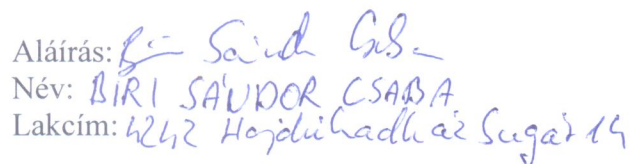 Aláírás: Biri Sándor Csaba
Név: BIRI SÁNDOR CSABA
Lakcím: 4242 Hajdúhadház Sugár 14